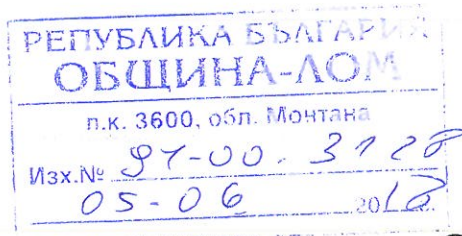 РЕПУБЛИКА БЪЛГАРИЯ
ОБЩИНА-ЛОМ
п.к. 3600, обл. Монтана
Изх.№ 91-00.3128
05-06 2018